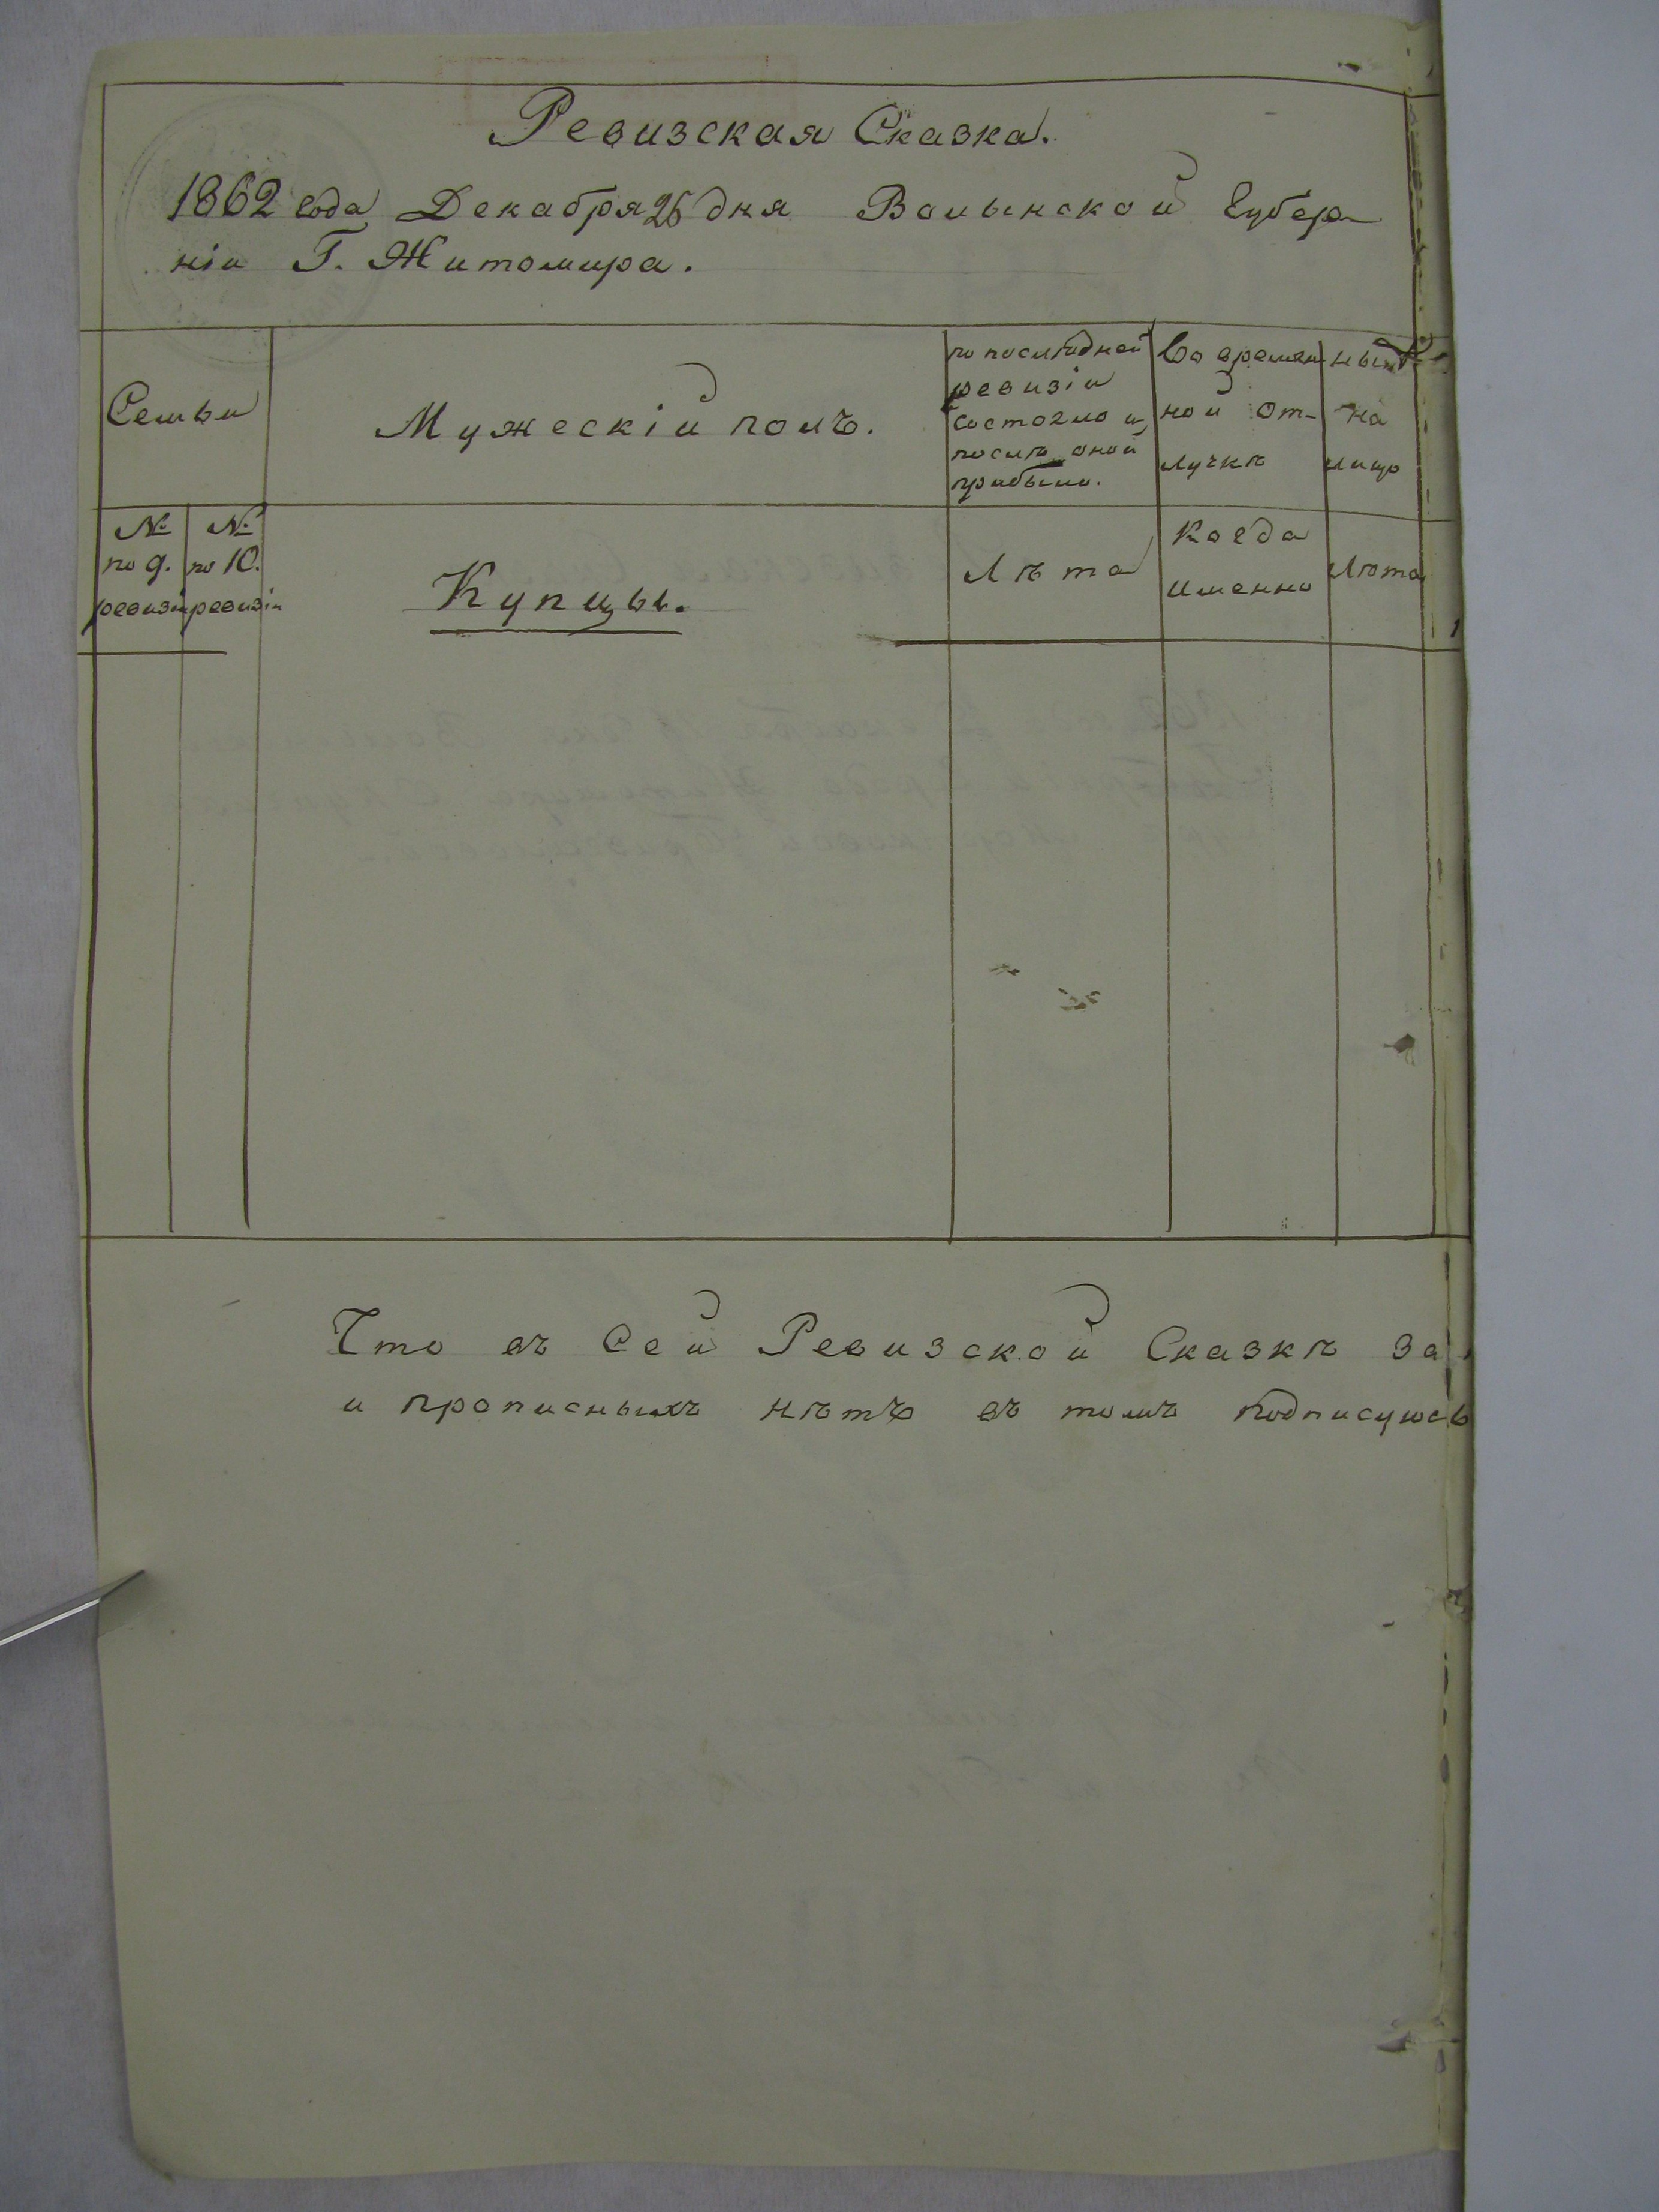 Ревизская Сказка.
1862 года Декабря 26 дня Волынской Губер
ніи Г. Житомира.
Семьи
Мужескій полъ.
по последней
ревизіи
состояло и
после оной
прибыло.
Во времен
ной от-
лучкѣ
на
лицо
№
по 9.
ревизіи
№
по 10.
ревизіи
Купцы.
Лѣта
Когда
именно
Лѣта
Что въ Сей Ревизской Сказкѣ за
и прописныхъ нѣтъ въ томъ подписуюсь